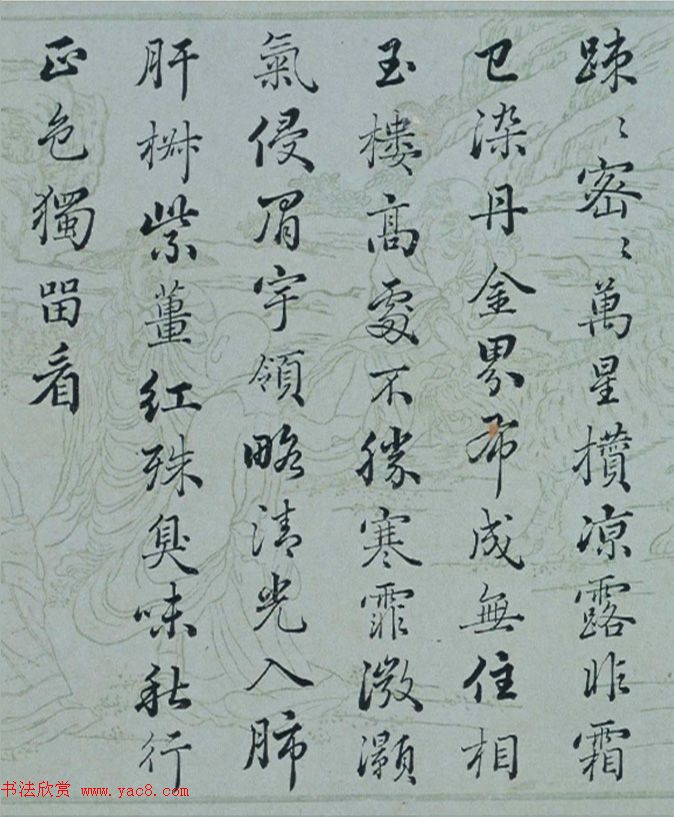 踈〻密〻萬星攢凉露昨霜
已染丹金界布成無住相
玉樓高處不勝寒霏溦灝
氣侵眉宇領略清光入肺
肝椒紫薑紅殊臭味秋行
正色獨留看
书法欣赏 www.yac8.com